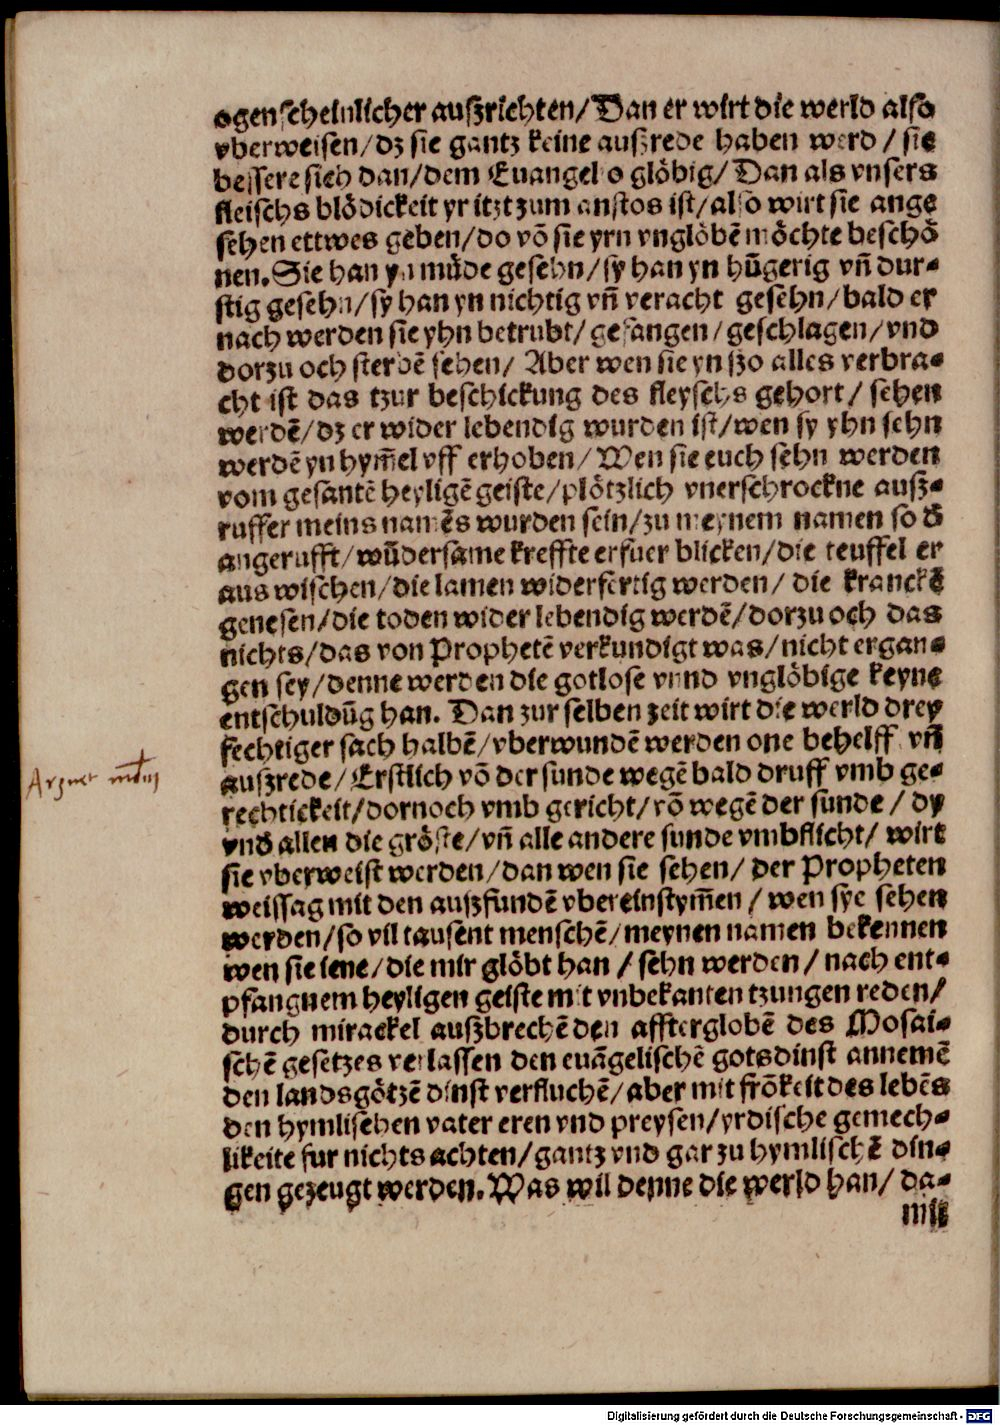 ogenscheinlicher auſzrichten/ Dan er wirt die werld alſo
vberweisen/ dz sie gantz keine auſzrede haben werd / sie
bessere sich dan/ dem Euangelio glöbig/ Dan als vnsers
fleischs blödickeit yr itzt zum anstos ist/ also wirt sie ange
sehen ettwes geben/ do võ sie yrn vnglöbẽ möchte beschö
nen. Sie han yn müde gesehn/ sy han yn hũgerig vñ dur-
stig gesehn/ sy han yn nichtig vñ veracht gesehn/ bald er
nach werden sie yhn betrubt/ gefangen/ geschlagen/ vnd
dorzu och sterbẽ sehen/ Aber wen sie yn ſzo alles verbra-
cht ist das tzur beschickung des fleyschs gehort/ sehen
werdẽ/ dz er wider lebendig wurden ist/ wen sy yhn sehn
werdẽ yn hym̃el vff erhoben/ Wen sie euch sehn werden
vom gesantẽ heyligẽ geiste/ plötzlich vnerschrockne auſz-
ruffer meins namẽs wurden sein/ zu meynem namen so d̃
angerufft/ wũdersame kreffte erfuer blicken/ die teuffel er
aus wischen/ die lamen widerfertig werden/ die kranckẽ
genesen/ die toden wider lebendig werdẽ/ dorzu och das
nichts/ das von Prophetẽ verkundigt was/ nicht ergan-
gen sey/ denne werden die gotlose vnnd vnglöbige keyne
entschuldũg han. Dan zur selben zeit wirt die werld drey
fechtiger sach halbẽ/ vberwundẽ werden one behelff vñ
auſzrede/ Erstlich võ der sunde wegẽ bald druff vmb ge-
rechtickeit/ dornoch vmb gericht/ võ wegẽ der sunde / dy
vnd̃ allen die gröste/ vñ alle andere sunde vmbflicht/ wirt
sie vberweist werden/ dan wen sie sehen/ der Propheten
weissag mit den auſzfundẽ vbereinstym̃en / wen sye sehen
werden/ so vil tausent menschẽ/ meynen namen bekennen
wen sie iene/ die mir glöbt han / sehn werden / nach ent-
pfangnem heyligen geiste mit vnbekanten tzungen reden/
durch mirackel auſzbrechẽ den affterglobẽ des Mosai-
schẽ gesetzes verlassen den euãgelischẽ gotsdinst annemẽ
den landsgötzẽ dinst verfluchẽ/ aber mit frõkeit des lebẽs
den hymlischen vater eren vnd preysen/ yrdische gemech-
likeite fur nichts achten/ gantz vnd gar zu hymlischẽ din-
gen gezeugt werden. Was wil denne die werld han/ da-
mit
Digitalisierung gefördert durch die Deutsche Forschungsgemeinschaft - DFG